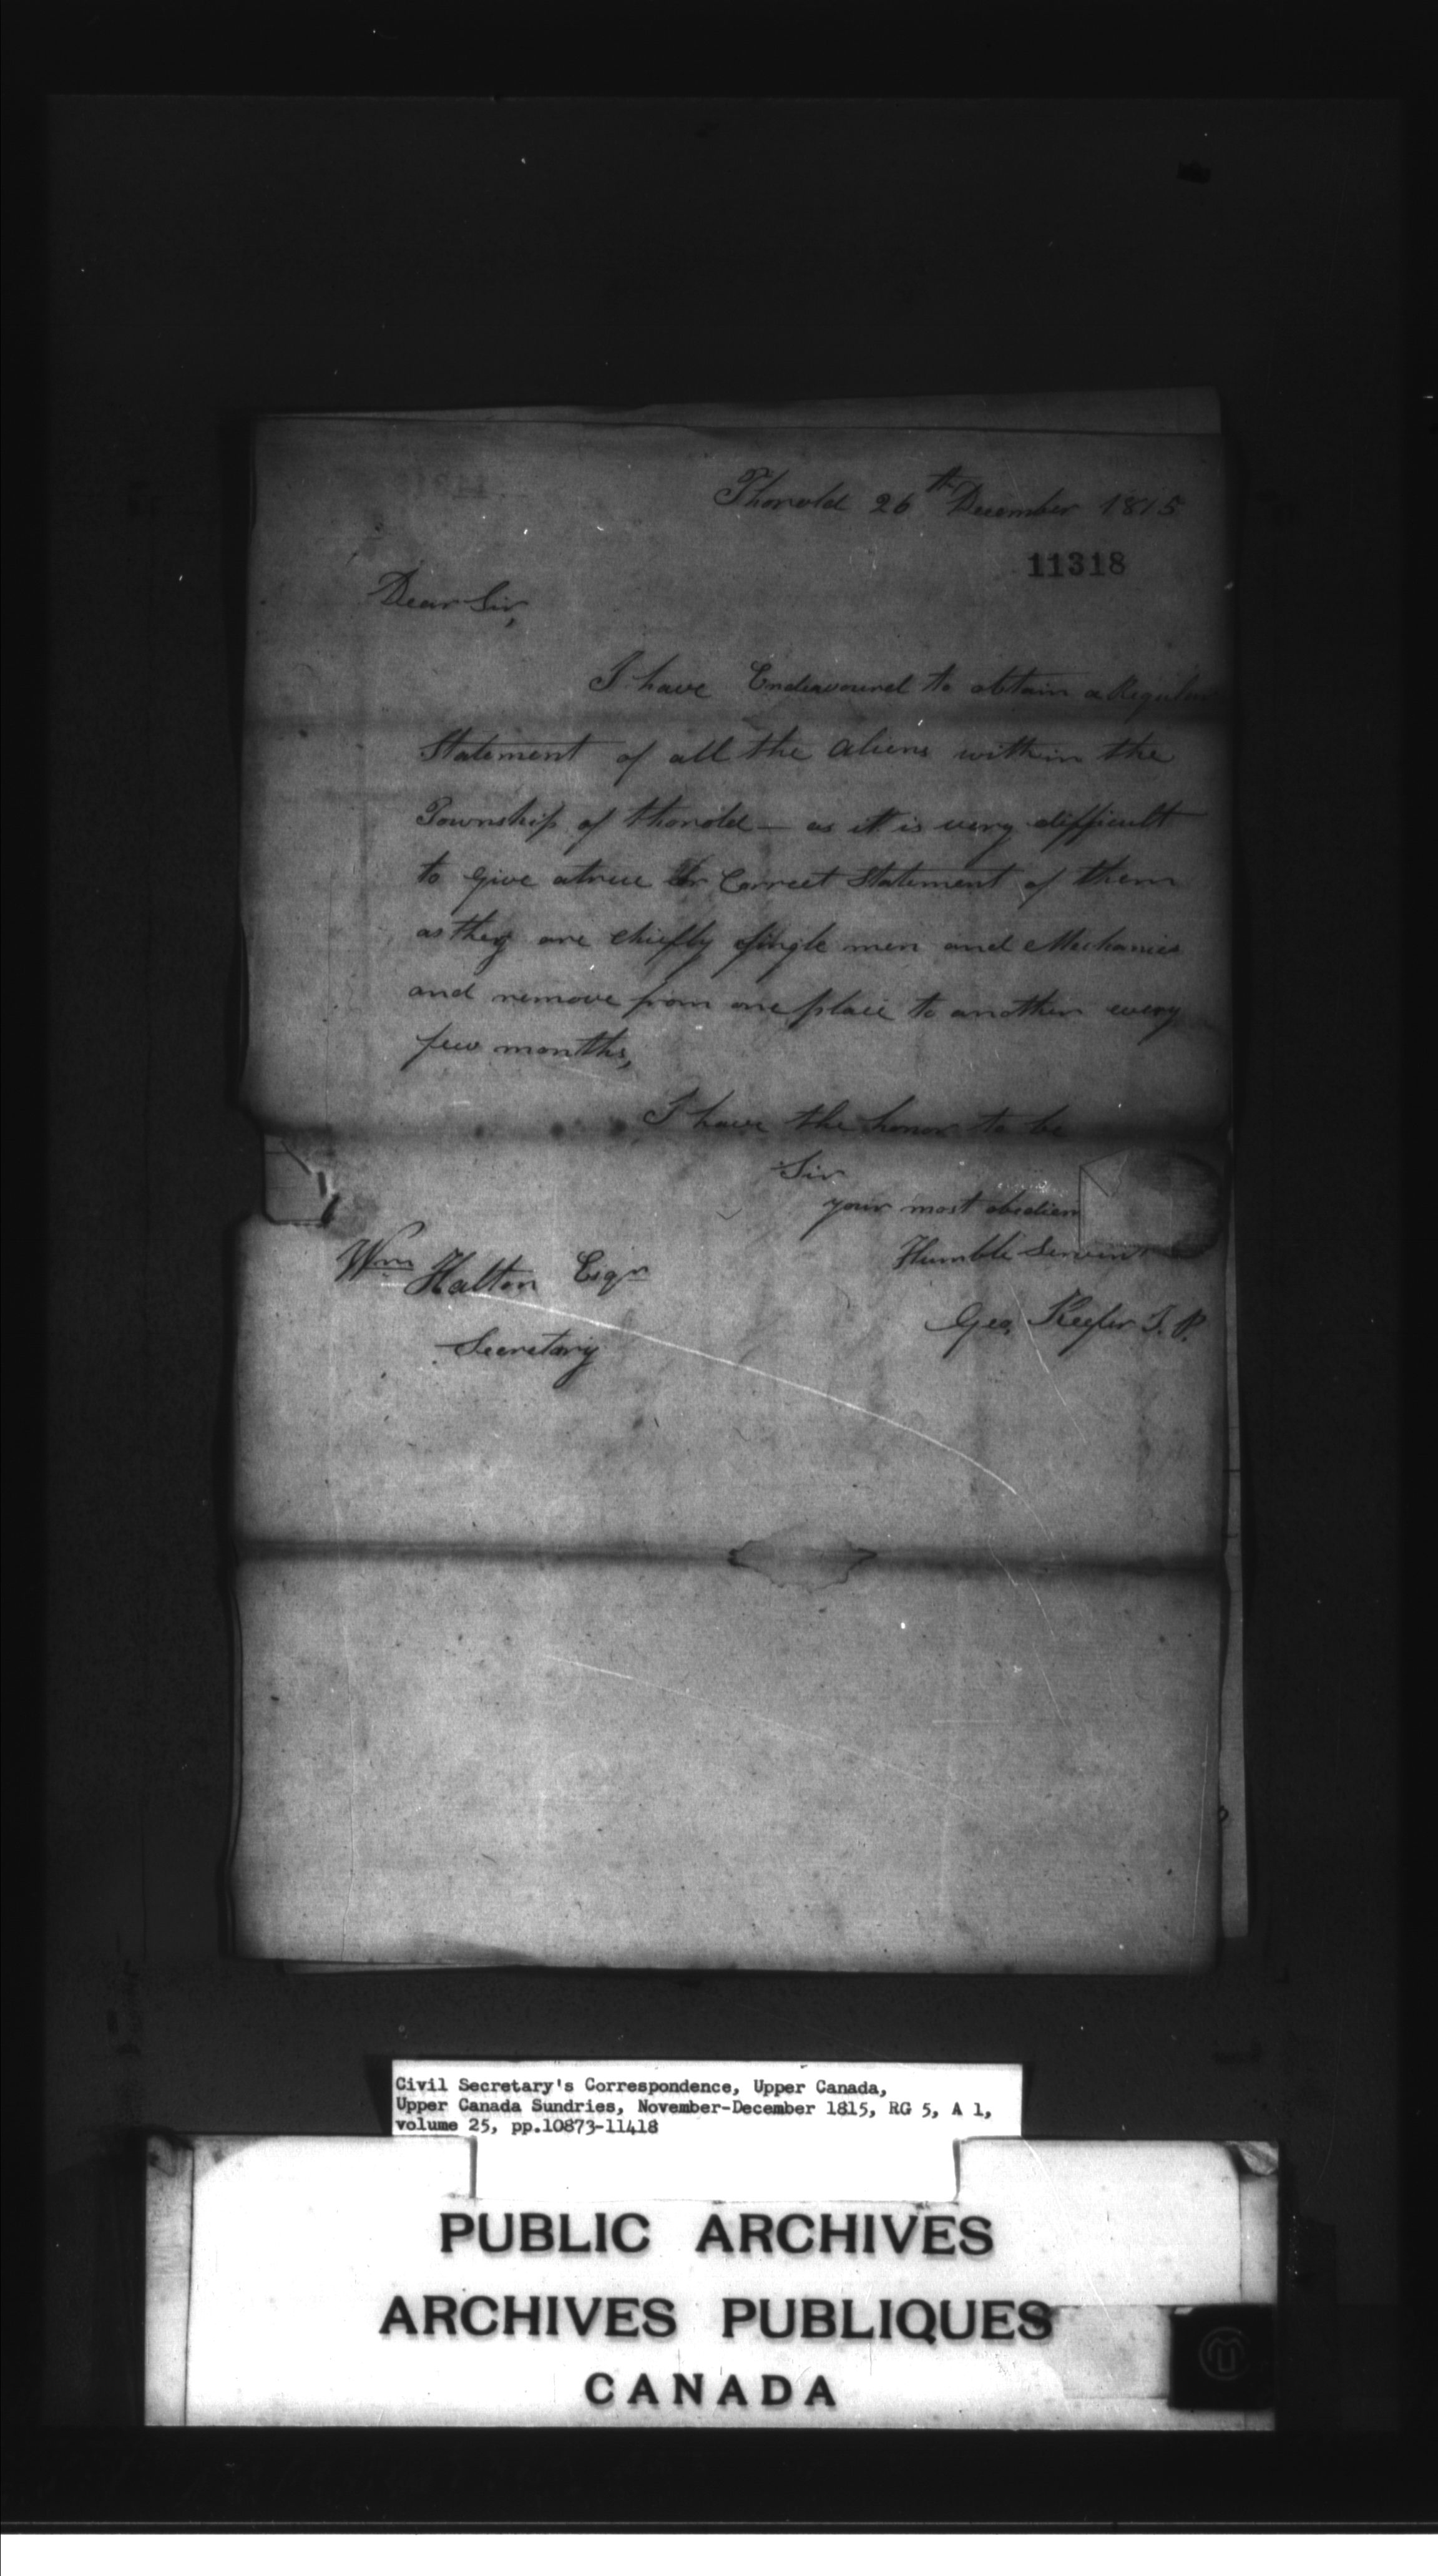 Thorold 26th December 1815
11318
Dear Sir,
I have Endeavoured to obtain a Regular
Statement of all the Aliens within the
Township of thorold — as it is very difficult
to give a true Or Correct Statement of them
as they are chiefly single men and Mechanics
and remove from one place to another every
few months,
I have the honor to be
Sir
your most obedien
Humble Servent
Wm Halton Esqr
Geo, Keefer J. P.
Secretary
Civil Secretary's Correspondence, Upper Canada,
Upper Canada Sundries, November-December 1815, RG 5, A 1,
volume 25, pp.10873-11418
PUBLIC ARCHIVES
ARCHIVES PUBLIQUES
CANADA